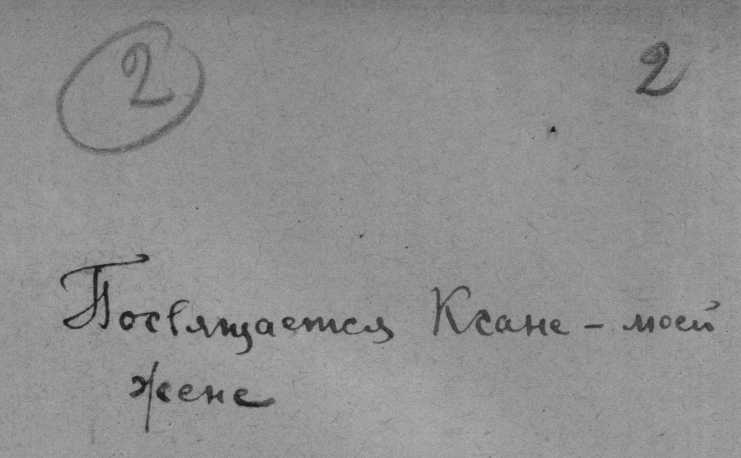 2 2
Посвящается Ксане – моей
жене